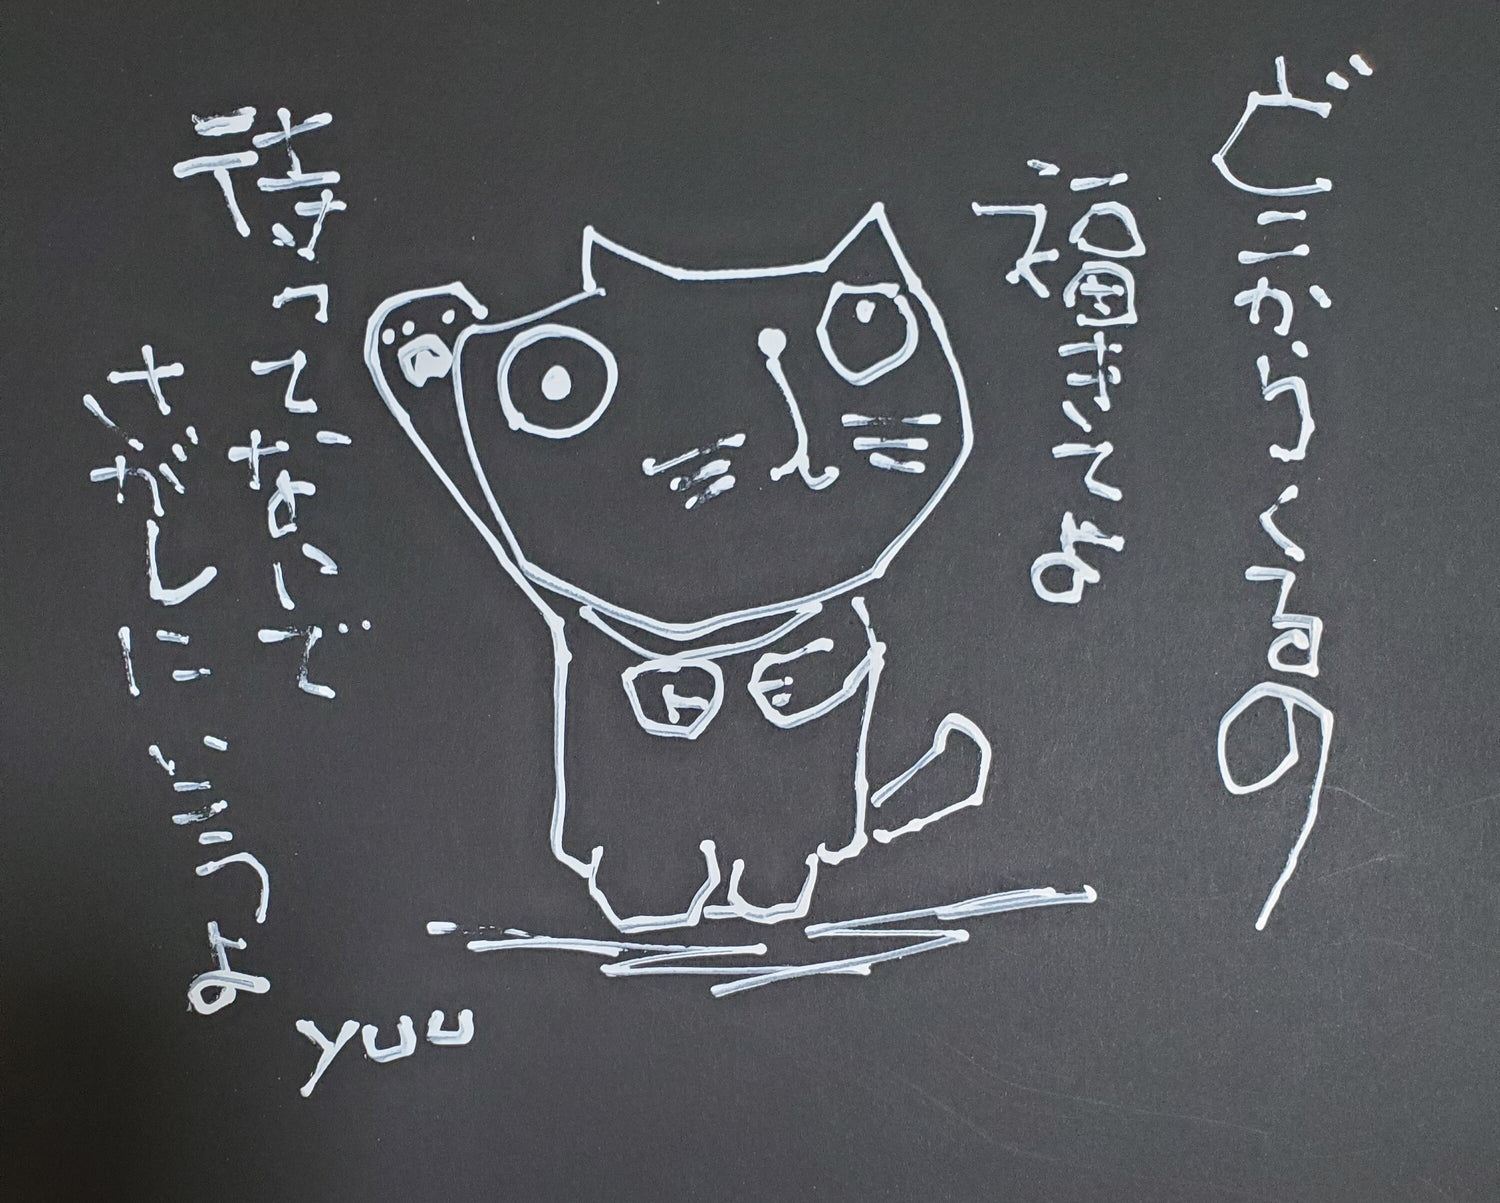 どこからくるの
福来てよ
待ってないで
さがしにいこうよ
yuu